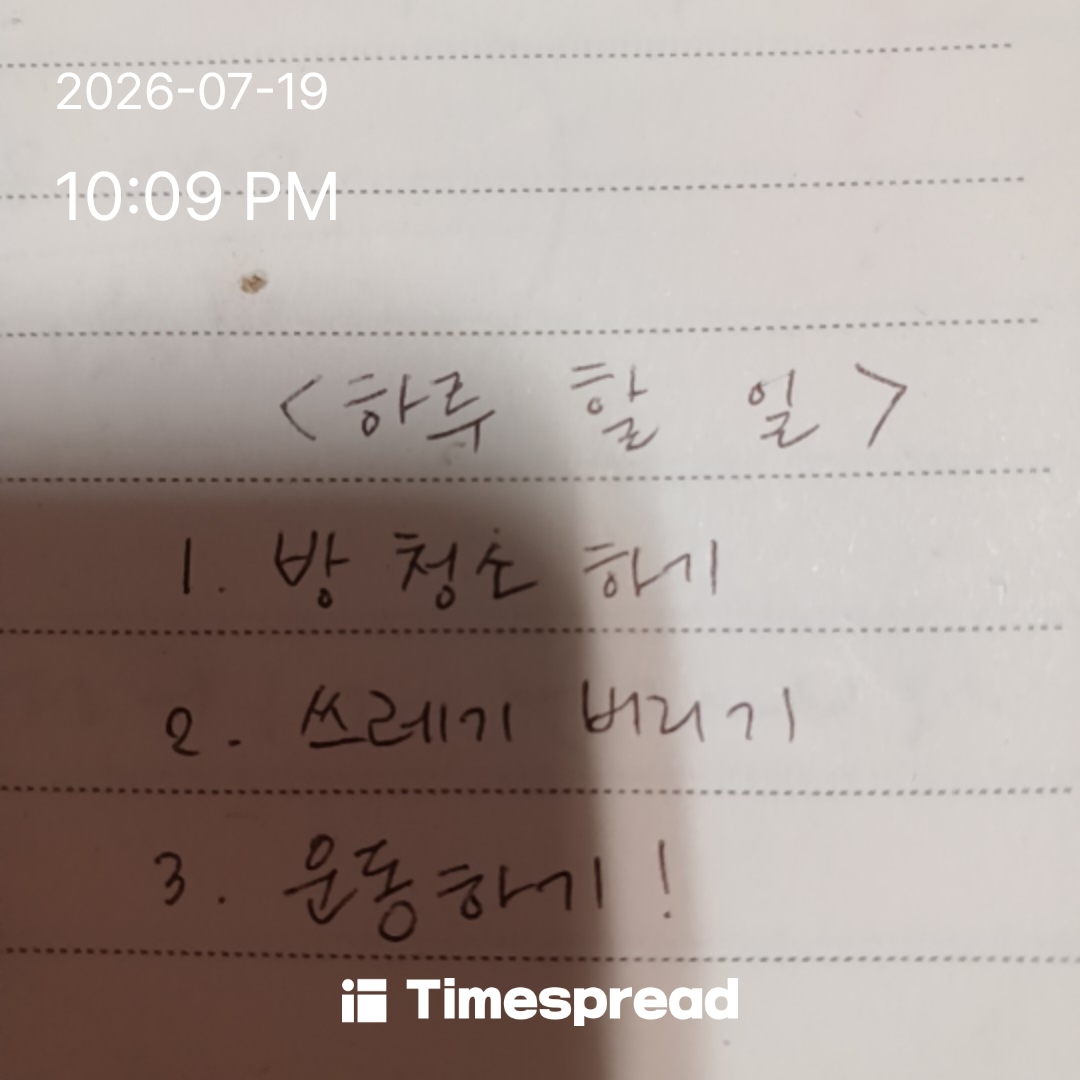 2026-07-19
10:09 PM
<하루 할 일>
1. 방 청소 하기
2. 쓰레기 버리기
3. 운동하기!
Timespread